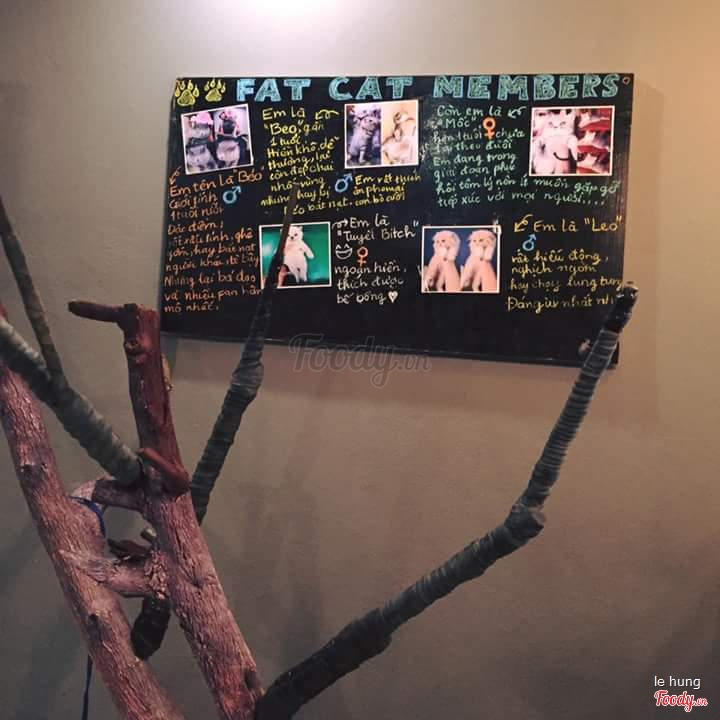 FAT CAT MEMBERS
Em tên là "Báo"
Giới tính ♂
1 tuổi rưỡi
Đặc điểm:
người khác,
Nhưng lại bá đạo
và nhiều fan hâm
mộ nhất.
Em là
"Beo", gần
1 tuổi.
Hiền khô, dễ
thương, lại
còn đẹp chai
nhất vùng
nhưng hay bị
bắt nạt.
♂ Em rất thích
ăn phomai
con bò cười
Còn em là
"Mốc" ♀
hơn 1 tuổi, chưa
Em đang trong
giai đoạn phục
hồi tâm lý nên ít muốn gặp gỡ
tiếp xúc với mọi người....
Em là
"Tuyết Bitch"
♀
ngoan hiền,
thích được
bế bồng ♡
Em là "Leo"
♂
rất hiếu động,
nghịch ngợm
hay chạy lung tung
Đáng iu nhất nhà
Foody.vn
le hung
Foody.vn